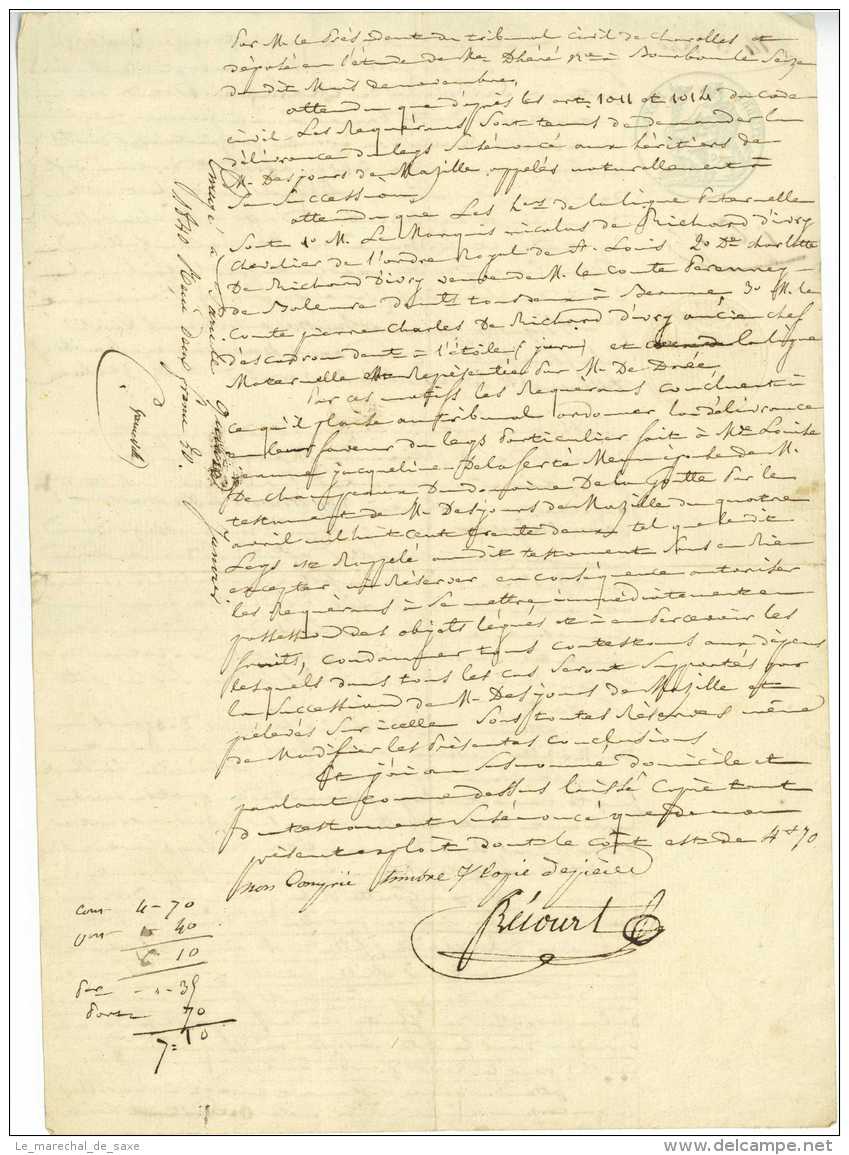 Par M. le Président du tribunal civil de Charolles et
déposé en l'étude de Me Dhéré Nre à Bourbon le Seize
du dit Mois de novembre,
attendu que d'après les art. 1011 et 1014 du Code
civil Les Requérans sont tenus de demander la
délivrance du legs susénoncé aux héritiers de
M. Desjours de Mazille appelés naturellement à
Sa Succession,
attendu que Les hers de la ligne Paternelle
Sont 1o M. Le Marquis nicolas de Richard d'ivry
chevalier de l'ordre Royal de St. Louis 2o De charlotte
De Richard D'ivry veuve de M. le comte
de dt tous deux à Beaune 3o M. le
Comte pierre Charles De Richard d'ivry ancien chef
d'escadron dt à l'étoile (jura) et la ligne
Maternelle est Représentée par M. De Drée,
Par ces motifs les Requérans concluent à
ce qu'il plaise au tribunal ordonner la délivrance
en leur faveur du legs Particulier fait à Me Louise
jeanne jacqueline Delaferté Meun épouse de M.
De Champeaux Du domaine De la Goutte Par le
testament de M. Desjours de Mazille du quatre
avril mil huit cent trente deux tel que le dit
Legs est Rappelé au dit testament Sans en Rien
excepter ni Réserver en conséquence autoriser
les Requérans à Se mettre immédiatement en
possession des objets légués et à en Percevoir les
fruits, condamner tous contestans aux dépens
lesquels dans tous les cas Seront Supportés par
la Succession de M. Desjours de Mazille et
prélevés Sur icelle Sous toutes Réserves même
De Modifier les Présentes conclusions
Et j'ai au Susnommé domicile et
parlant comme dessus laissé Copie tant
du testament Susénoncé que de mon
présent exploit dont le coût est de 4f 70
non Compris timbre et Copie de pièces
Récourt
cout 4-70
40
6 10
35
70
7=10
Le_marechal_de_saxe
PICCLICK DELCAMPE.NET